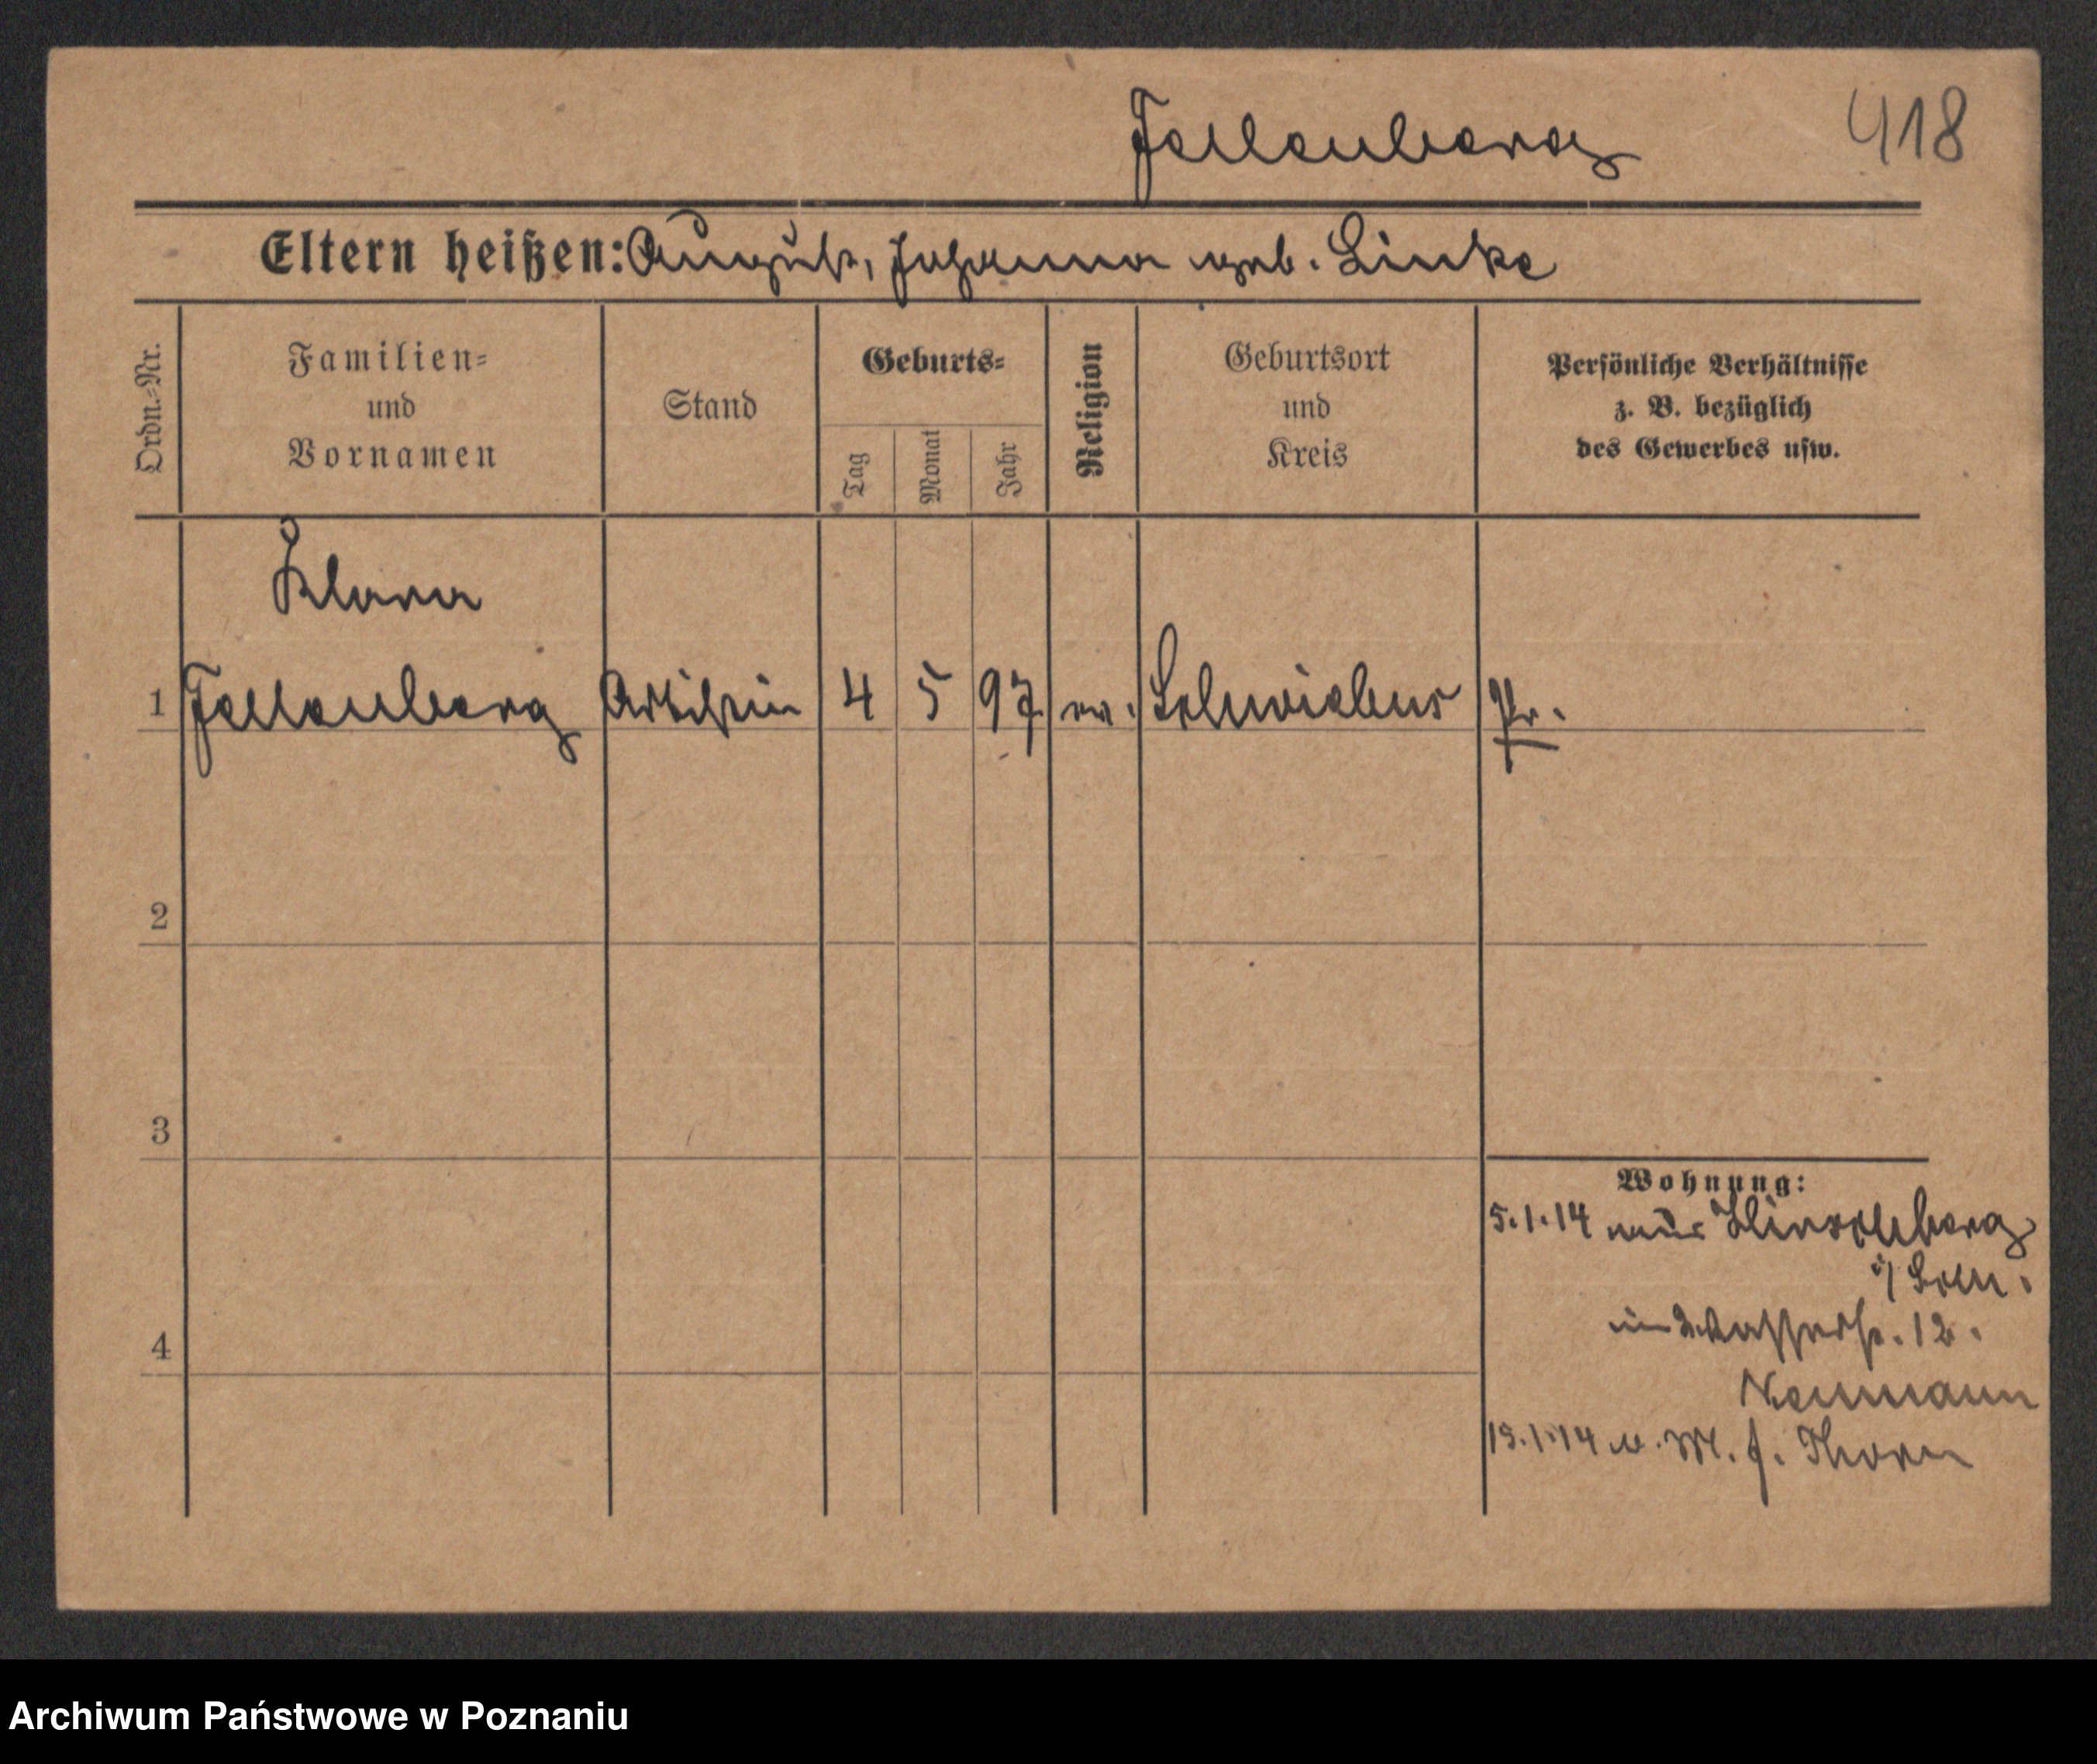 Fellenberg 418
Eltern heißen: August, Johanna geb. Linke
Ordn.-Nr.
Familien-
und
Vornamen
Stand
Geburts-
Tag
Monat
Jahr
Religion
Geburtsort
und
Kreis
Persönliche Verhältnisse
z. B. bezüglich
des Gewerbes usw.
Klara
1 Fellenberg Artistin 4 5 97 ev. Schwiebus Pr.
2
3
4
Wohnung:
5.1.14 aus Hirschberg
i/ Schl.
in Wasserstr. 12.
Neumann
15.1.14 n. M. f. Thorn
Archiwum Państwowe w Poznaniu